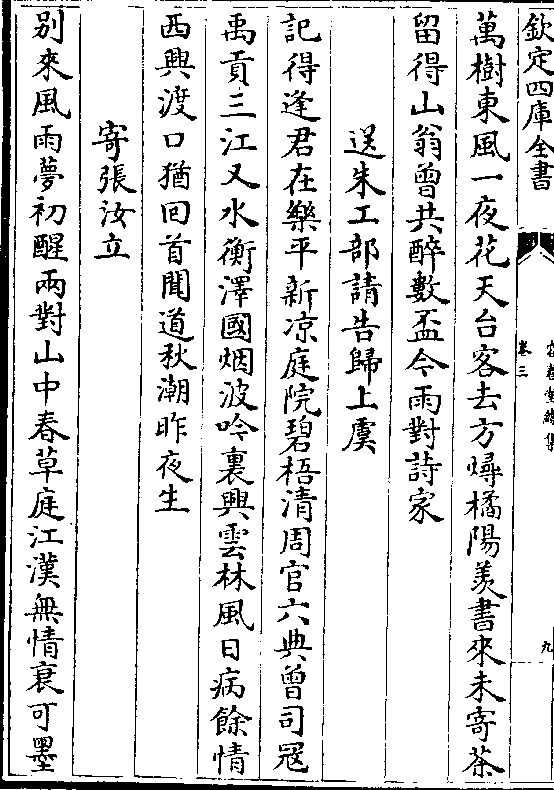 欽定四庫全書
卷三
九
萬樹東風一夜花天台客去方燖橘陽羨書來未寄茶
留得山翁曾共醉數盃今雨對詩家
送朱工部請告歸上虞
記得逢君在樂平新凉庭院碧梧清周官六典曾司冦
禹貢三江又水衡澤國烟波吟裏興雲林風日病餘情
西興渡口猶回首聞道秋潮昨夜生
寄張汝立
别來風雨夢初醒兩對山中春草庭江漢無情衰可墨